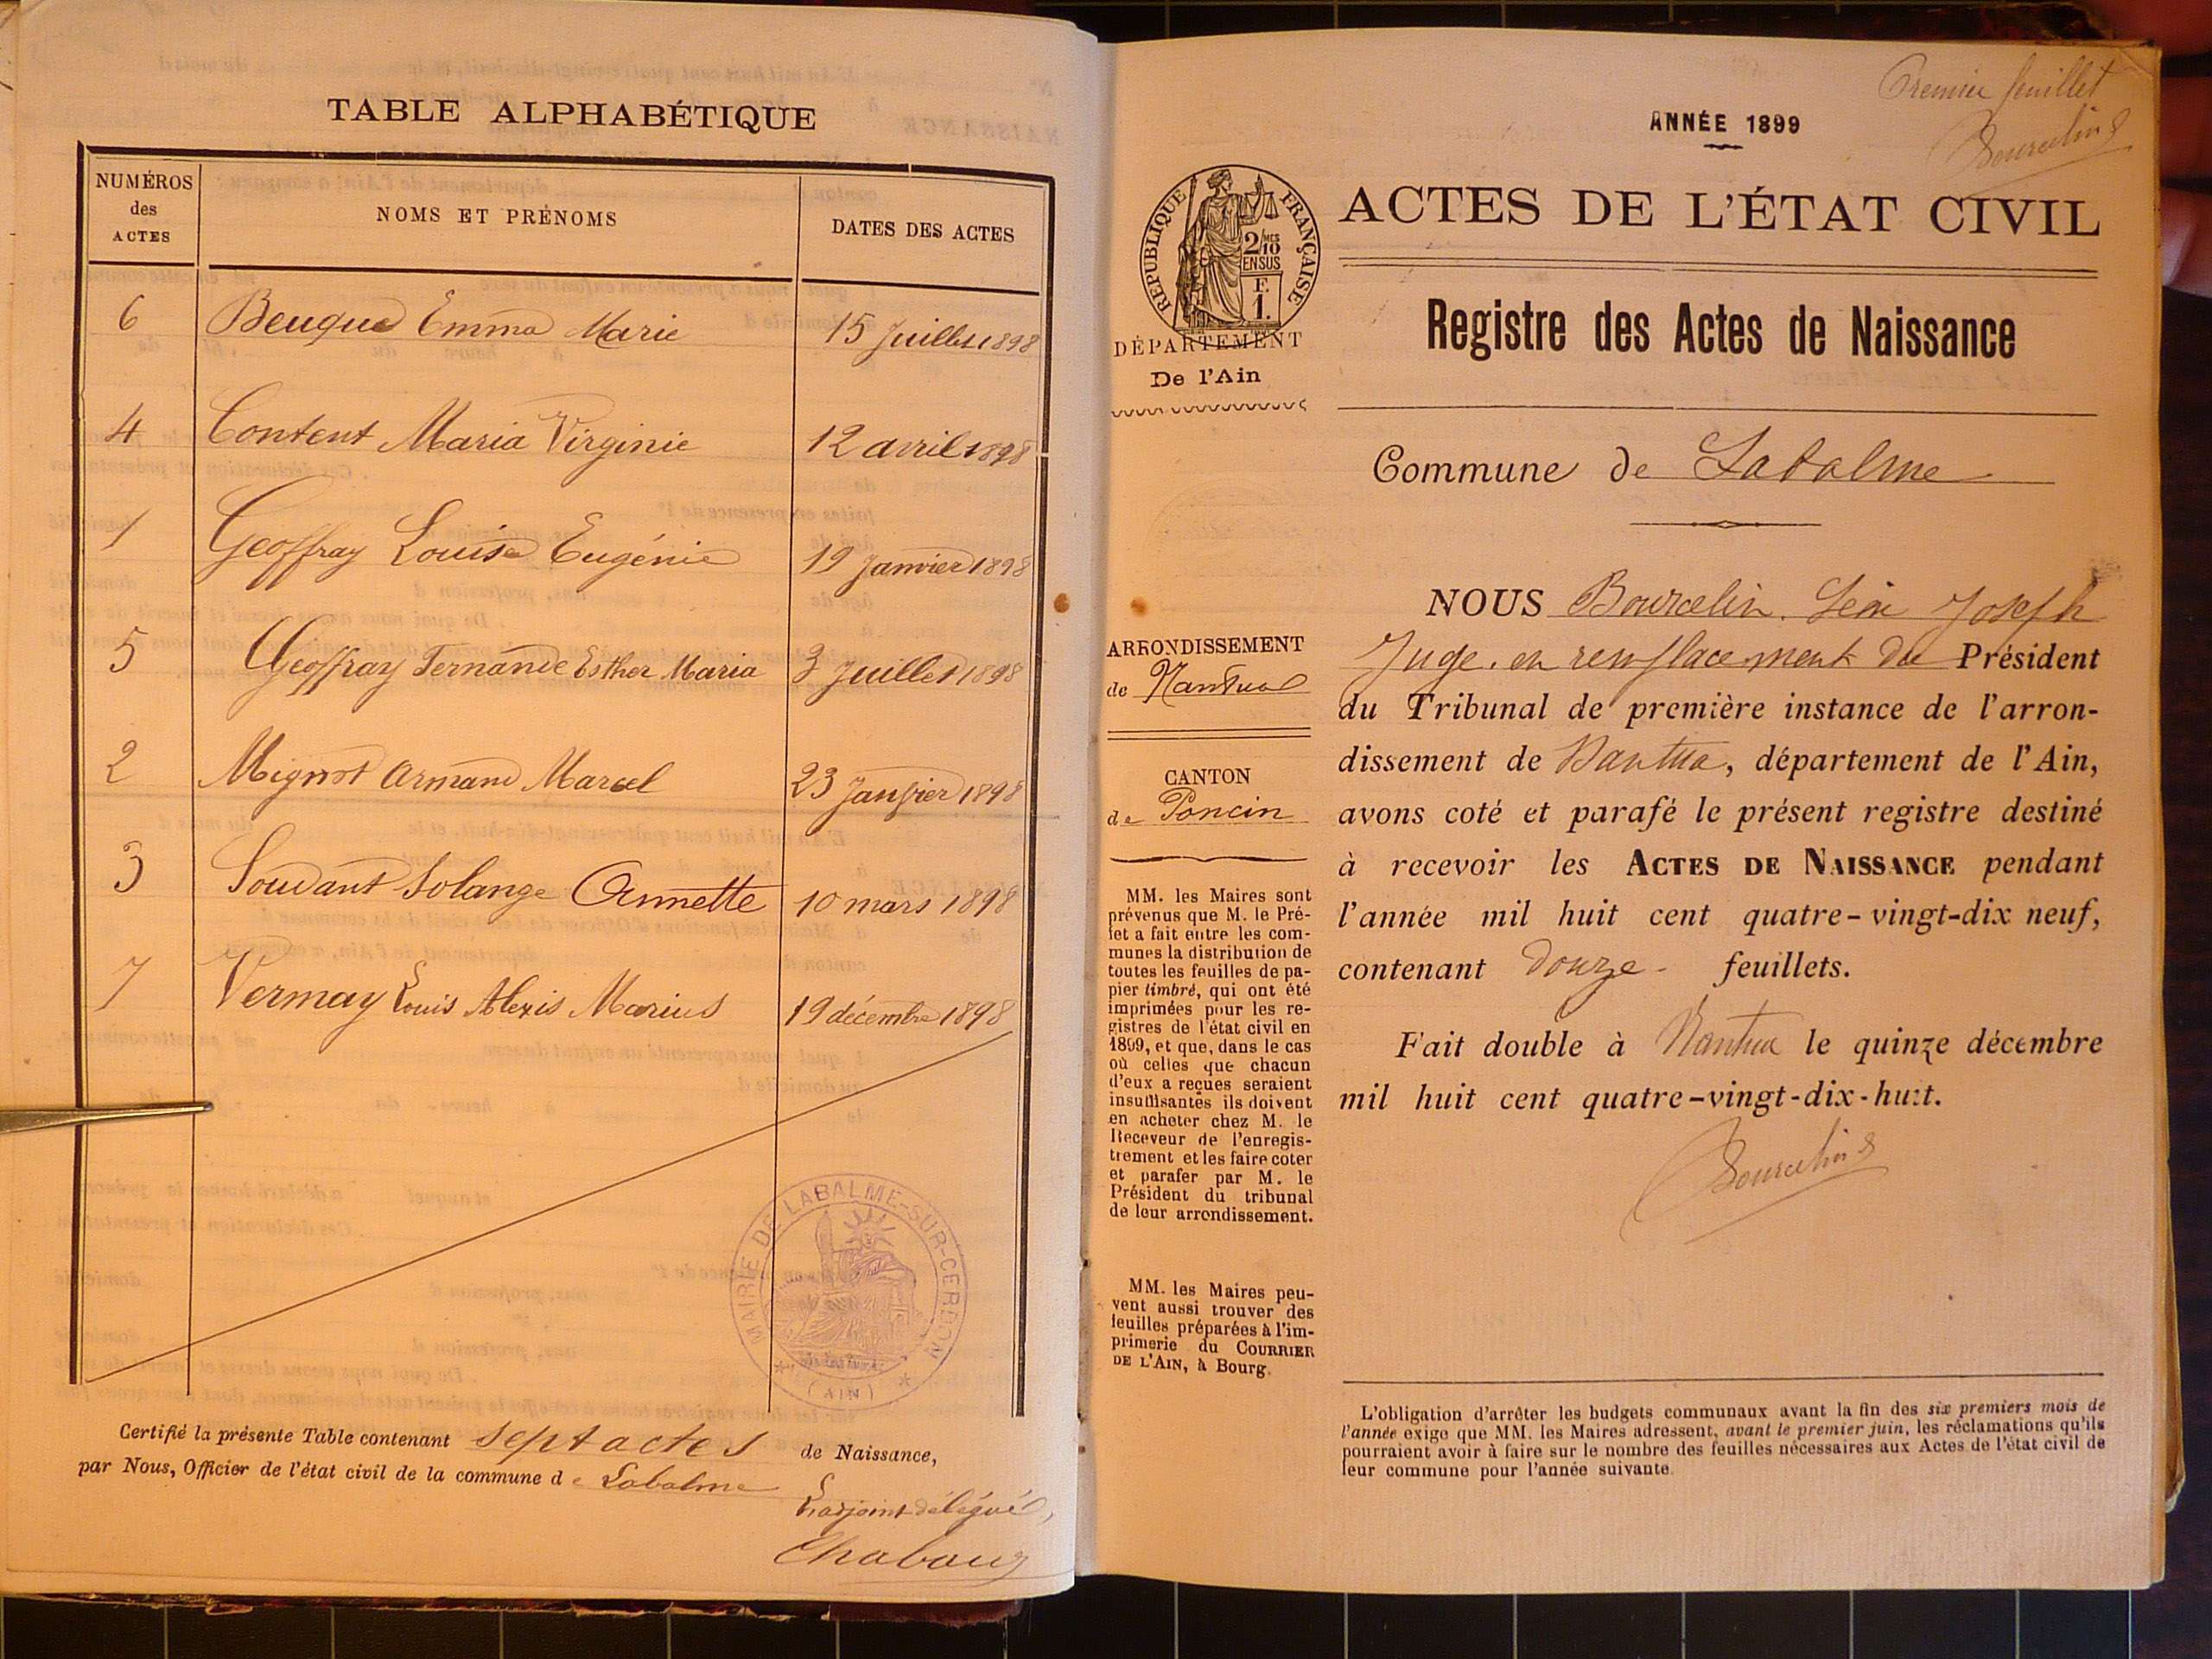 TABLE ALPHABÉTIQUE
NUMÉROS des ACTES NOMS ET PRÉNOMS DATES DES ACTES
6 Beuque Emma Marie 15 Juillet 1898
4 Content Maria Virginie 12 avril 1898
1 Geoffray Louise Eugénie 19 Janvier 1898
5 Geoffray Fernande Esther Maria 3 Juillet 1898
2 Mignot Armand Marcel 23 Janvier 1898
3 Soudant Solange Annette 10 mars 1898
7 Vermay Louis Alexis Marius 19 décembre 1898
MAIRIE DE LABALME-SUR-CERDON
(AIN)
Certifié la présente Table contenant sept actes de Naissance,
par Nous, Officier de l'état civil de la commune de Labalme
L'adjoint délégué,
Premier feuillet
Bourcelin
ANNÉE 1899
RÉPUBLIQUE FRANÇAISE
2/10 MES
EN SUS
F.
1.
ACTES DE L'ÉTAT CIVIL
DÉPARTEMENT
De l'Ain
Registre des Actes de Naissance
Commune de Labalme
ARRONDISSEMENT
de Nantua
CANTON
de Poncin
MM. les Maires sont
prévenus que M. le Pré-
fet a fait entre les com-
munes la distribution de
toutes les feuilles de pa-
pier timbré, qui ont été
imprimées pour les re-
gistres de l'état civil en
1899, et que, dans le cas
où celles que chacun
d'eux a reçues seraient
insuffisantes ils doivent
en acheter chez M. le
Receveur de l'enregis-
trement et les faire coter
et parafer par M. le
Président du tribunal
de leur arrondissement.
MM. les Maires peu-
vent aussi trouver des
feuilles préparées à l'im-
primerie du COURRIER
DE L'AIN, à Bourg.
NOUS Bourcelin Léon Joseph
Juge en remplacement du Président
du Tribunal de première instance de l'arron-
dissement de Nantua, département de l'Ain,
avons coté et parafé le présent registre destiné
à recevoir les ACTES DE NAISSANCE pendant
l'année mil huit cent quatre-vingt-dix neuf,
contenant douze feuillets.
Fait double à Nantua le quinze décembre
mil huit cent quatre-vingt-dix-huit.
Bourcelin
L'obligation d'arrêter les budgets communaux avant la fin des six premiers mois de
l'année exige que MM. les Maires adressent, avant le premier juin, les réclamations qu'ils
pourraient avoir à faire sur le nombre des feuilles nécessaires aux Actes de l'état civil de
leur commune pour l'année suivante.